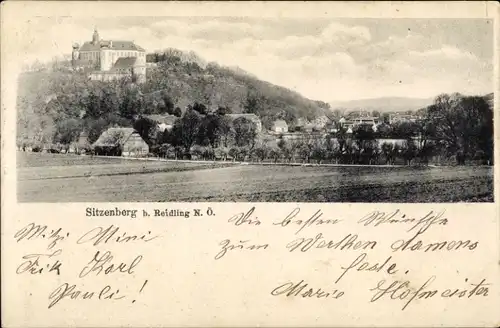 Sitzenberg b. Reidling N. Ö.
Mitzi Mini
Frik Karl
Pauli!
Die besten Wünsche
zum Werthen Namens
feste.
Marie Hofmeister